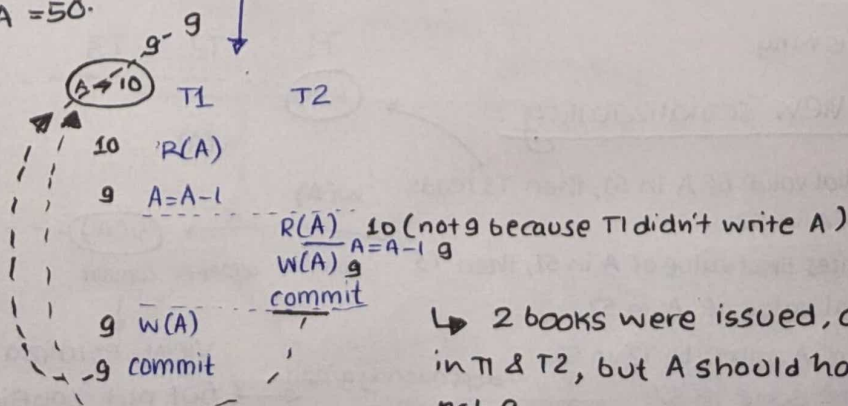 A = 50.
9 9
A → 10 T1 T2
10 R(A)
9 A=A-1
R(A) 10 (not 9 because T1 didn't write A)
A=A-1 9
W(A) 9
commit
9 W(A)
9 commit
↳ 2 books were issued,
in T1 & T2, but A should